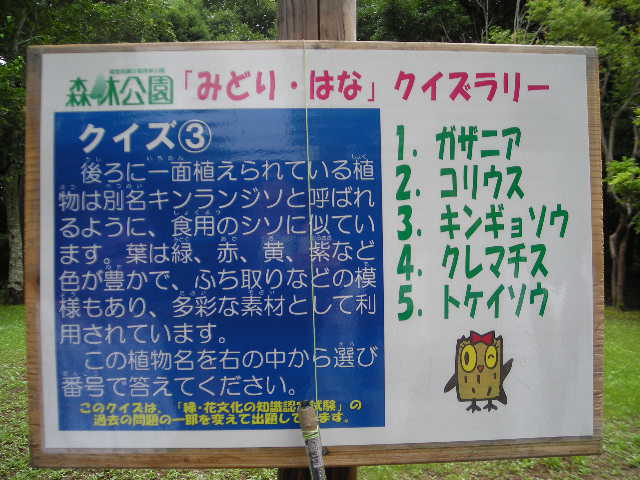 森林公園「みどり・はな」クイズラリー
クイズ③
後ろに一面植えられている植
物は別名キンランジソと呼ばれ
るように、食用のシソに似てい
ます。葉は緑、赤、黄、紫など
色が豊かで、ふち取りなどの模
様もあり、多彩な素材として利
用されています。
この植物名を右の中から選び
番号で答えてください。
このクイズは、「緑・花文化の知識認定試験」の
過去の問題の一部を変えて出題しています。
1. ガザニア
2. コリウス
3. キンギョソウ
4. クレマチス
5. トケイソウ